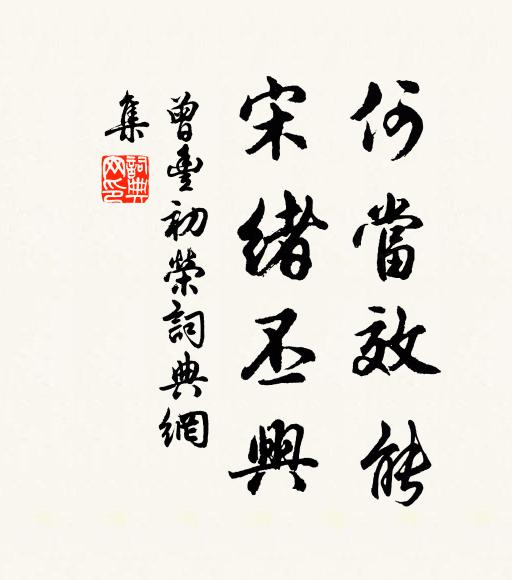 何當效能
宋緒丕興
曾豐初榮詞典網
集
詞典
网印